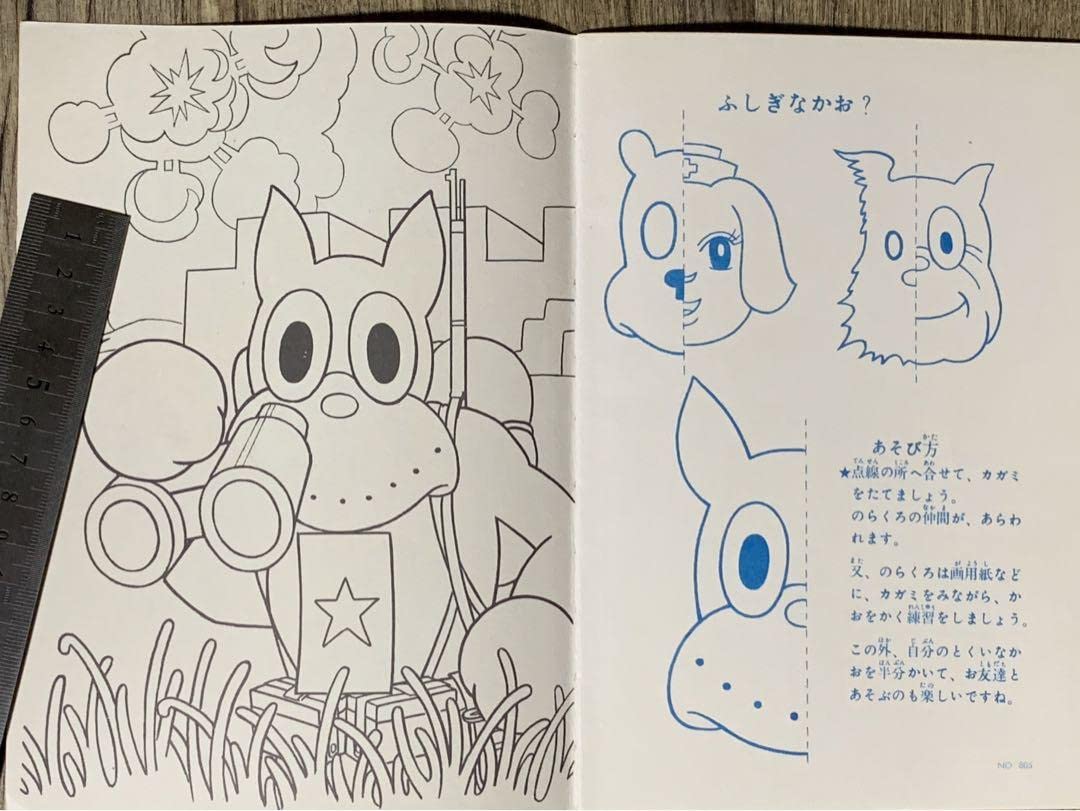 ふしぎなかお？
あそび方
★点線の所へ合せて、カガミ
をたてましょう。
のらくろの仲間が、あらわ
れます。
又、のらくろは画用紙など
に、カガミをみながら、か
おをかく練習をしましょう。
この外、自分のとくいなか
おを半分かいて、お友達と
あそぶのも楽しいですね。
NO. 805
1
2
3
4
5
6
7
8